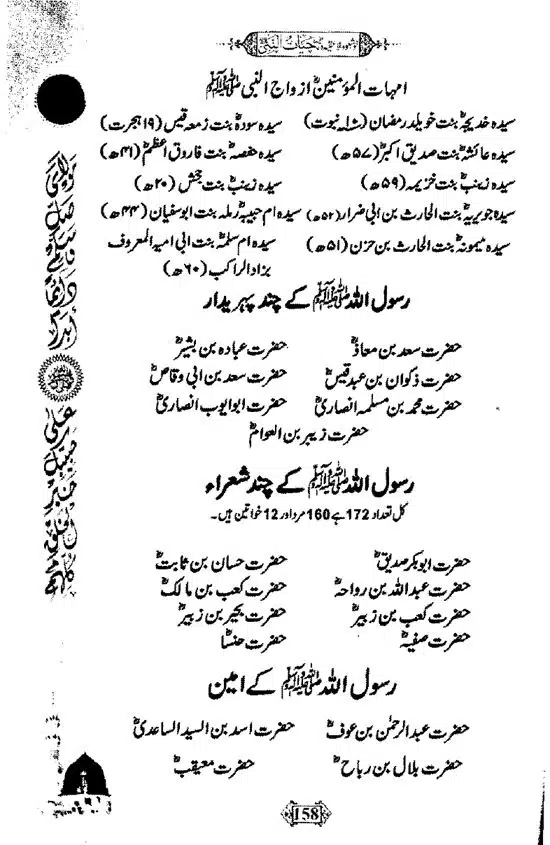 حیات النبی
امہات المؤمنینؓ ازواج النبی ﷺ
سیدہ خدیجہؓ بنت خویلد رمضان (۱۰ نبوت) سیدہ سودہؓ بنت زمعہ قیس (۱۹ ہجرت)
سیدہ عائشہؓ بنت صدیق اکبرؓ (۵۷ھ) سیدہ حفصہؓ بنت فاروق اعظمؓ (۴۱ھ)
سیدہ زینبؓ بنت خزیمہ (۵۹ھ) سیدہ زینبؓ بنت جحش (۲۰ھ)
سیدہ جویریہؓ بنت الحارث بن ابی ضرار (۵۲ھ) سیدہ ام حبیبہؓ رملہ بنت ابوسفیان (۴۴ھ)
سیدہ میمونہؓ بنت الحارث بن حزن (۵۱ھ) سیدہ ام سلمہؓ بنت ابی امیہ المعروف
بزاد الراکب (۶۰ھ)
رسول اللہ ﷺ کے چند پہریدار
حضرت سعد بن معاذؓ حضرت عبادہ بن بشیرؓ
حضرت ذکوان بن عبد قیسؓ حضرت سعد بن ابی وقاصؓ
حضرت محمد بن مسلمہ انصاریؓ حضرت ابوایوب انصاریؓ
حضرت زبیر بن العوامؓ
رسول اللہ ﷺ کے چند شعراء
کل تعداد 172 ہے 160 مرد اور 12 خواتین ہیں۔
حضرت ابوبکر صدیقؓ حضرت حسان بن ثابتؓ
حضرت عبداللہ بن رواحہؓ حضرت کعب بن مالکؓ
حضرت کعب بن زبیرؓ حضرت بحیر بن زبیرؓ
حضرت صفیہؓ حضرت خنساؓ
رسول اللہ ﷺ کے امین
حضرت عبدالرحمٰن بن عوفؓ حضرت اسد بن السید الساعدیؓ
حضرت بلال بن رباحؓ حضرت معیقبؓ
مولای صل وسلم دائما ابدا
علی حبیبک خیر الخلق کلھم
158